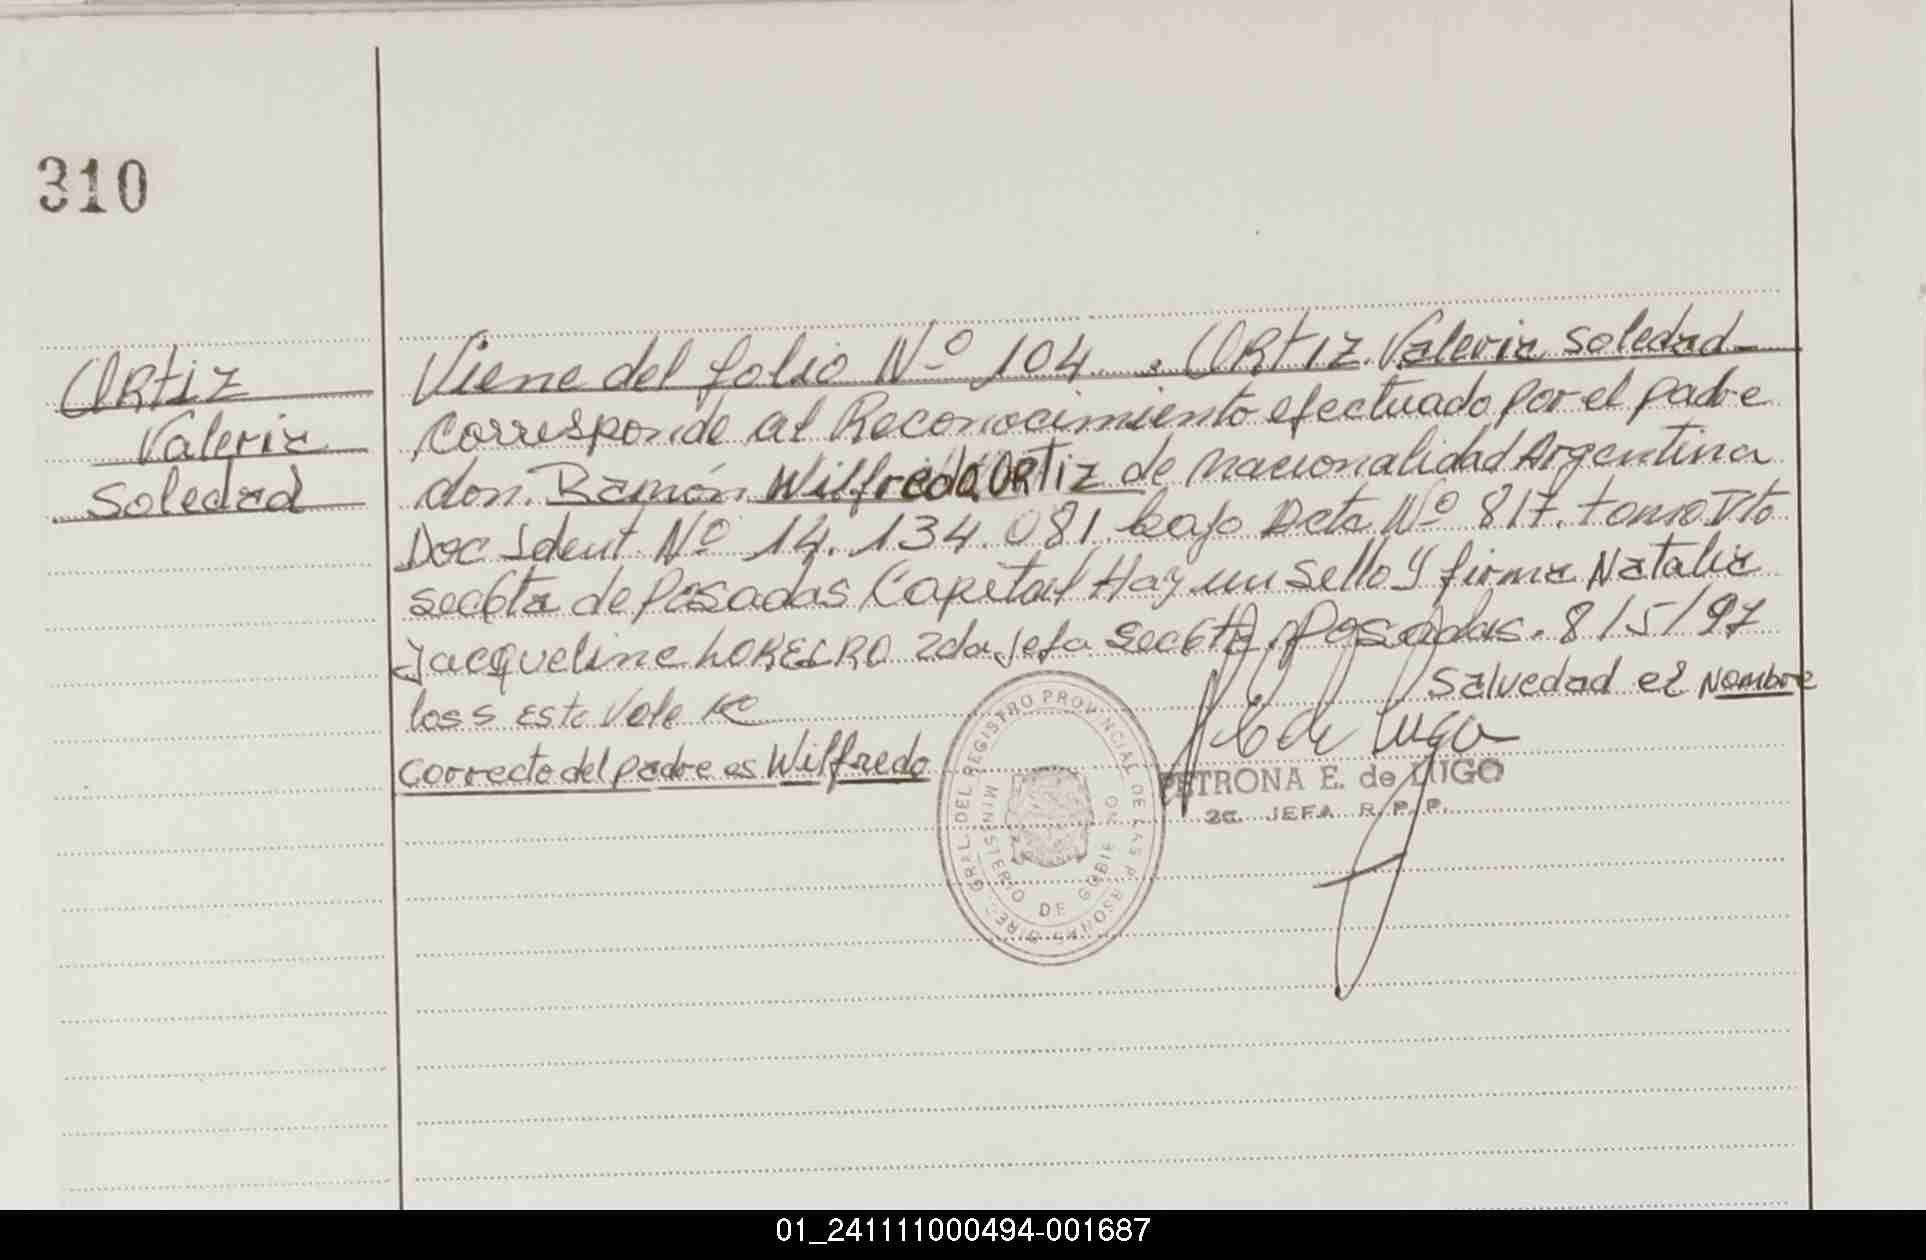 310
ORtiz
Valeria
Soledad
Viene del folio Nº 104. ORtIZ Valeria Soledad
Corresponde al Reconocimiento efectuado por el padre
don Ramón Wilfredo ORTiz de nacionalidad Argentina
Doc Ident Nº 14.134.081 bajo Acta Nº 817. tomo
de Posadas Capital Hay un sello y firma Natalia
Jacqueline 2da Jefa Posadas. 8/5/97
Salvedad el Nombre
este Vale
Correcto del padre es Wilfredo
de Lugo
PETRONA E. de LUGO
JEFA R.P.P.
REGISTRO PROVINCIAL DE LAS PERSONAS
MINISTERIO DE GOBIERNO
01_241111000494-001687